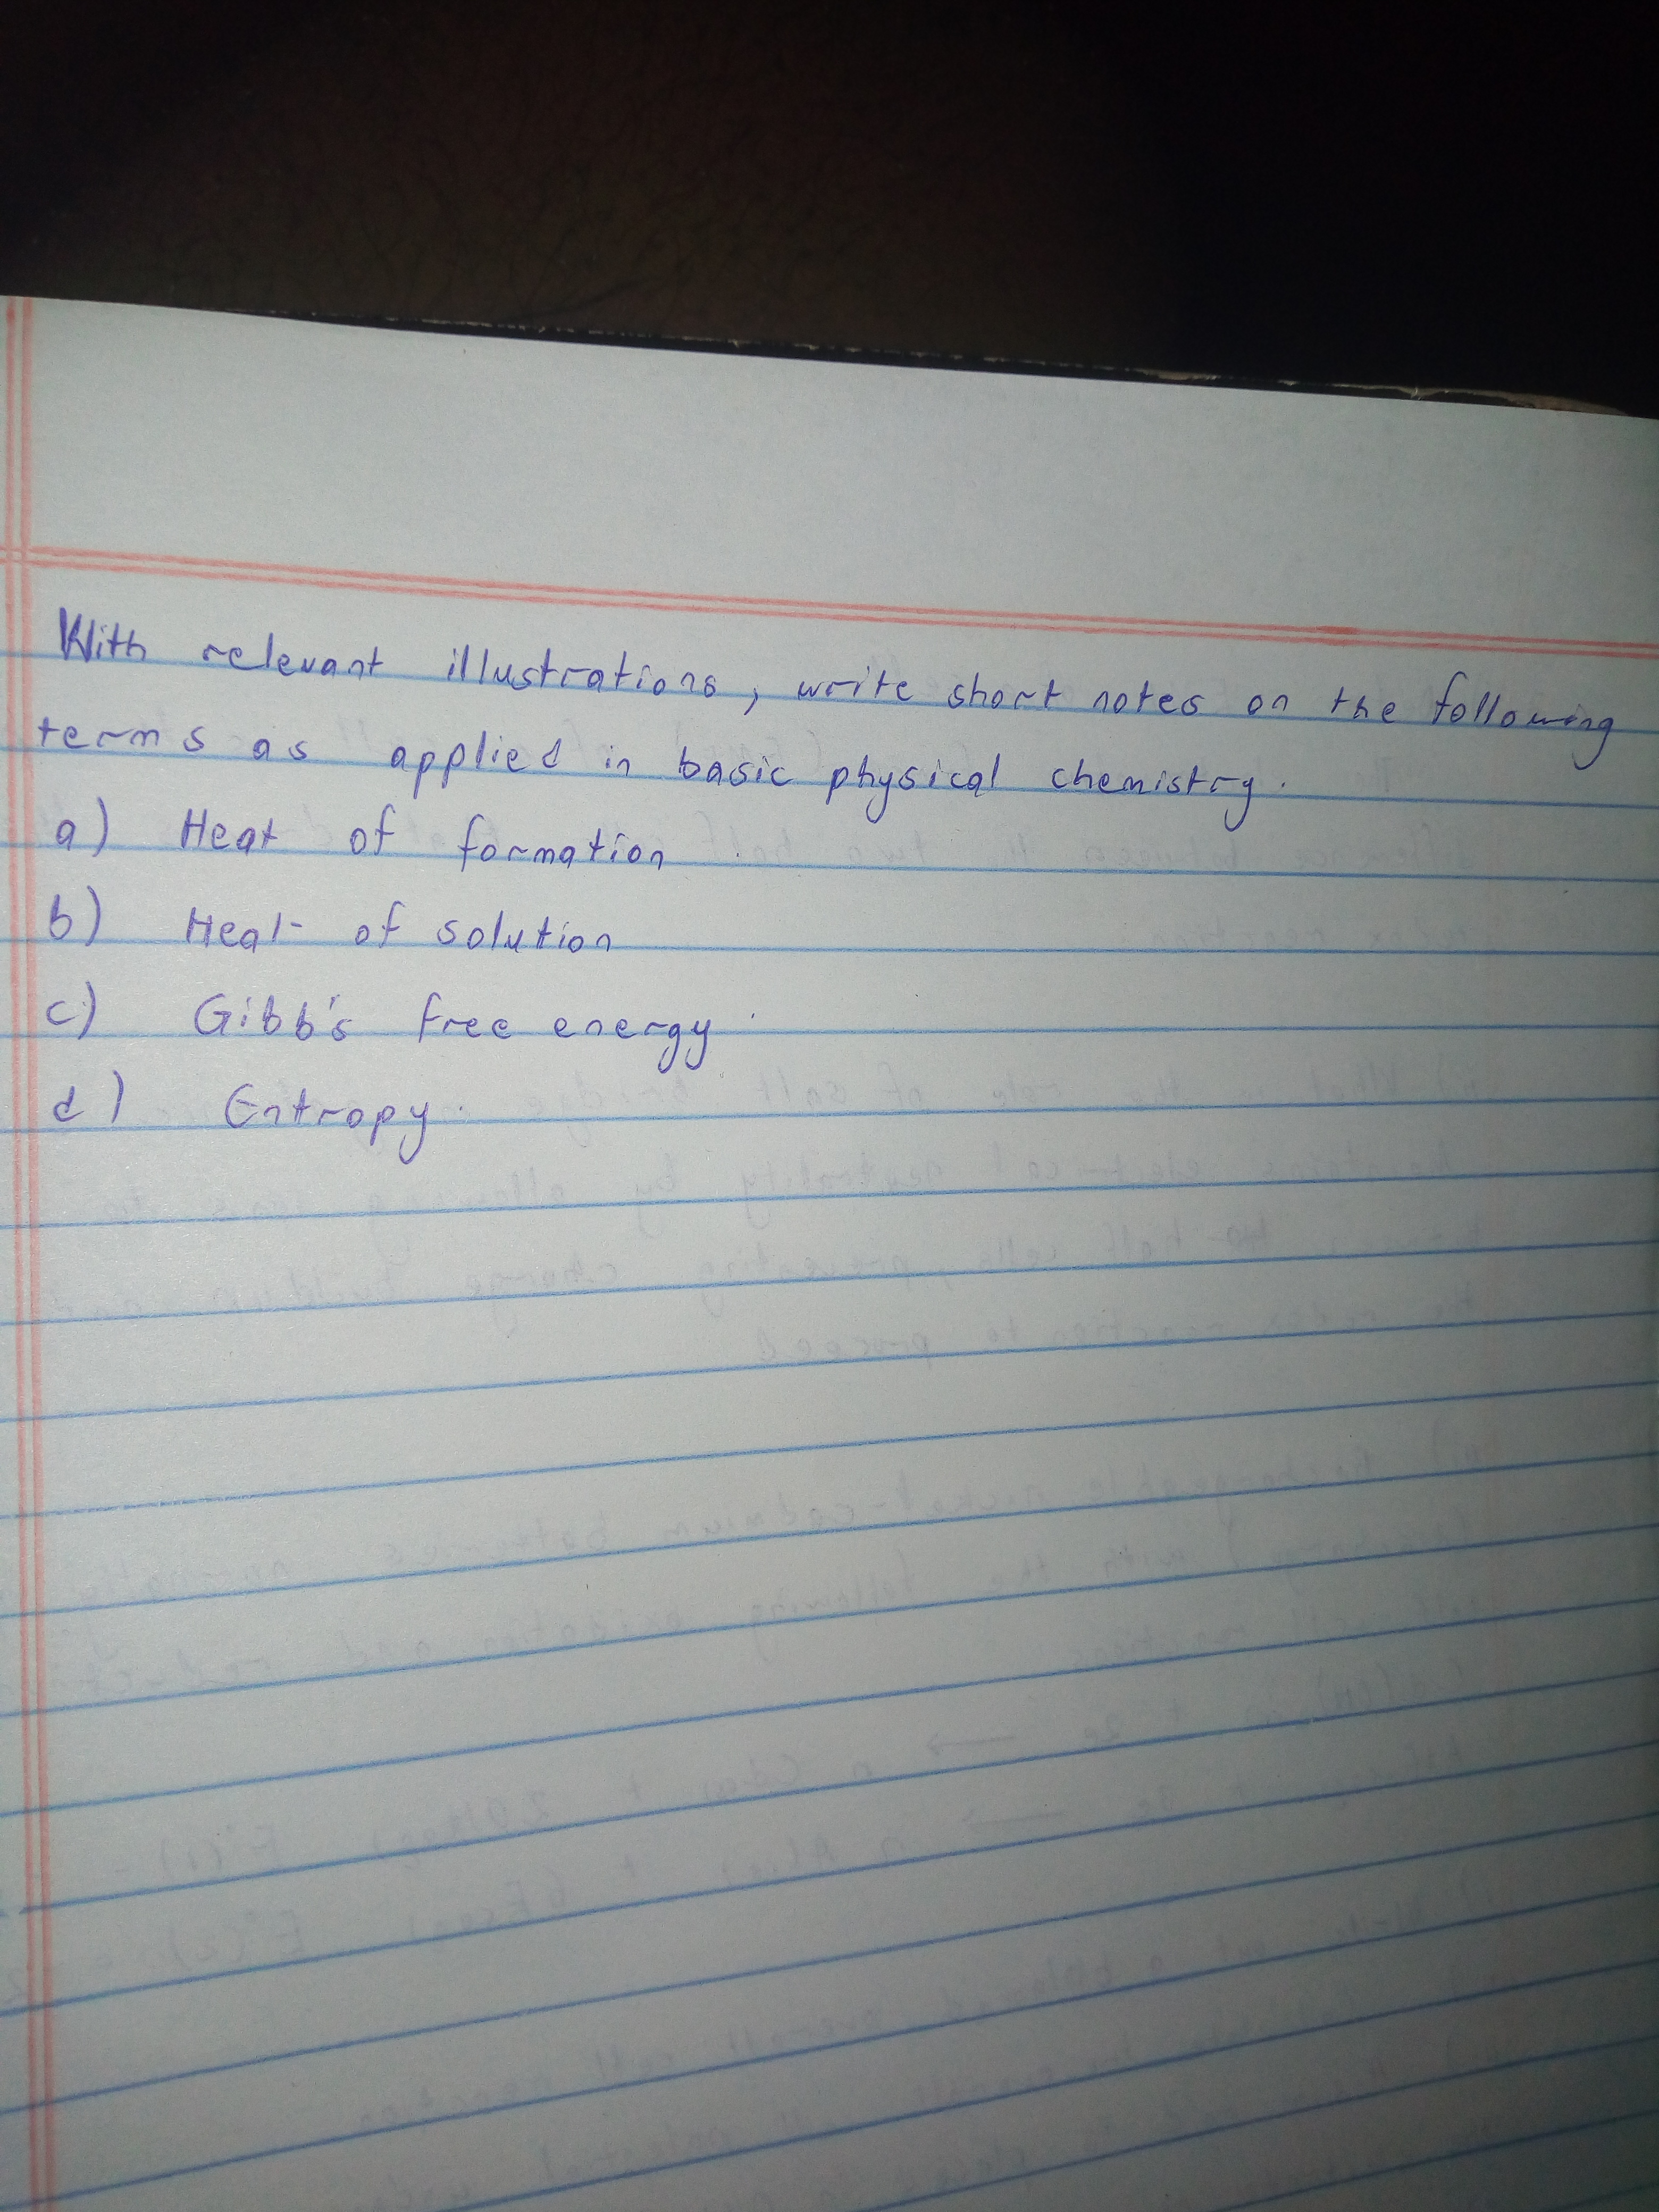 With relevant illustrations, write short notes on the following
terms as applied in basic physical chemistry.
a) Heat of formation
b) Heat of solution
c) Gibb's free energy
d) Entropy.